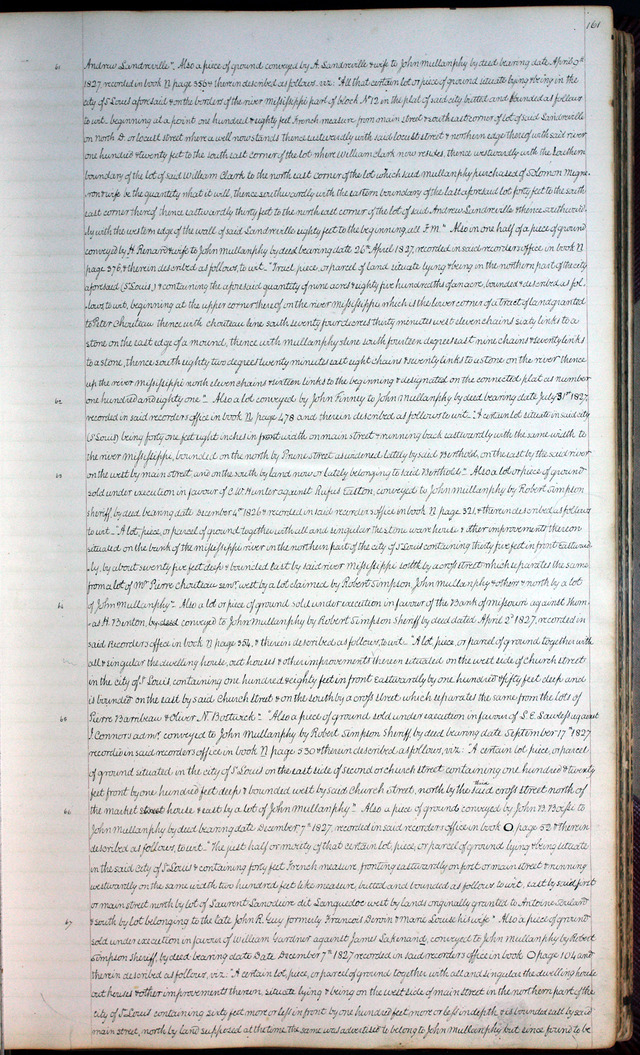 161
61 Andrew Landreville". Also a piece of ground conveyed by A. Landreville & wife to John Mullanphy by deed bearing date April 9th
1827, recorded in book N page 356 & therein described as follows, viz: "All that certain lot or piece of ground situate lying & being in the
city of St Louis aforesaid & on the borders of the river Mississippi part of block No 12 in the plat of said city butted and bounded as follows
to wit. beginning at a point one hundred & eighty feet French measure, from main street & south east corner of lot of said Landreville
on north D. or locust street where a well now stands thence eastwardly with said locust street & northern edge thereof with said river
one hundred & twenty feet to the south east corner of the lot where William Clark now resides, thence westwardly with the southern
boundary of the lot of said William Clark to the north east corner of the lot which said Mullanphy purchased of Solomon Migne-
ron & wife be the quantity what it will, thence southwardly with the eastern boundary of the last aforesaid lot forty feet to the south
east corner thereof thence eastwardly thirty feet to the north east corner of the lot of said Andrew Landreville & thence southward-
ly with the western edge of the wall of said Landreville eighty feet to the beginning, all F. M." Also in one half of a piece of ground
conveyed by H. Renard & wife to John Mullanphy by deed bearing date 26th April 1827, recorded in said recorders office in book N
page 376, & therein described as follows, to wit. "Tract, piece, or parcel of land situate lying & being in the northern part of the city
aforesaid (St Louis,) & containing the aforesaid quantity of nine acres & eighty five hundredths of an acre, bounded & described as fol-
lows, to wit, beginning at the upper corner thereof on the river Mississippi which is the lower corner of a tract of land granted
to Peter Chouteau thence with Chouteau line south seventy four degrees thirty minutes west eleven chains sixty links to a
stone on the east edge of a mound, thence with Mullanphys line south fourteen degrees east nine chains & seventy links
to a stone, thence south eighty two degrees twenty minutes east eight chains & seventy links to a stone on the river thence
up the river Mississippi north eleven chains & sixteen links to the beginning & designated on the connected plat as number
62 one hundred and eighty one". Also a lot conveyed by John Finney to John Mullanphy by deed bearing date July 31st 1827,
recorded in said recorders office in book N page 478 and therein described as follows to wit. "A certain lot situate in said city
(St Louis) being forty one feet eight inches in front width on main street & running back eastwardly with the same width to
the river Mississippi, bounded on the north by Prune street as widened lately by said Berthold, on the east by the said river
63 on the west by main street and on the south by land now or lately belonging to said Berthold". Also a lot or piece of ground
sold under execution in favour of C. W. Hunter against Rufus Easton, conveyed to John Mullanphy by Robert Simpson
sheriff, by deed bearing date December 4th 1826 & recorded in said recorders office in book N page 321, & therein described as follows
to wit. "A lot, piece, or parcel of ground together with all and singular the stone ware house & other improvements thereon
situated on the bank of the Mississippi river in the northern part of the city of St Louis containing thirty five feet in front Eastward-
ly, by about seventy five feet deep & bounded east by said river Mississippi south by a cross street which separates the same
from a lot of Mr Pierre Chouteau senr. west by a lot claimed by Robert Simpson, John Mullanphy & others & north by a lot
64 of John Mullanphy". Also a lot or piece of ground sold under execution in favour of the Bank of Missouri against Thom-
as H. Benton, by deed conveyed to John Mullanphy by Robert Simpson Sheriff by deed dated April 2d 1827, recorded in
said Recorders office in book N page 354, & therein described as follows, to wit. "A lot, piece, or parcel of ground together with
all & singular the dwelling house, out houses & other improvements thereon situated on the west side of church street
in the city of St Louis, containing one hundred & eighty feet in front Eastwardly by one hundred & fifty feet deep and
is bounded on the east by said Church street & on the south by a cross street which separates the same from the lots of
65 Pierre Barribeau & Oliver N. Bostwick". "Also a piece of ground sold under execution in favour of L. E. Lawless against
J Connors admr. conveyed to John Mullanphy by Robert Simpson Sheriff by deed bearing date September 17th 1827
recorded in said recorders office in book N page 530 & therein described as follows, viz: "A certain lot, piece, or parcel
of ground situated in the city of St Louis on the east side of second or church street, containing one hundred & twenty
feet front by one hundred feet deep & bounded west by said Church street, north by the third cross street north of
66 the market house & east by a lot of John Mullanphy". Also a piece of ground conveyed by John B. Bossie to
John Mullanphy by deed bearing date December 7th 1827, recorded in said recorders office in book O page 52 & therein
described as follows, to wit. "The just half or moiety of that certain lot, piece, or parcel of ground lying & being situate
in the said city of St Louis & containing forty feet French measure, fronting eastwardly on first or main street & running
westwardly on the same width two hundred feet like measure, butted and bounded as follows to wit, east by said first
or main street north by lot of Laurent dit Languedoc west by lands originally granted to Antoine
67 & south by lot belonging to the late John R. Guy formerly Francois & Marie Louise his wife". Also a piece of ground
sold under execution in favour of William Gardner against James conveyed to John Mullanphy by Robert
Simpson sheriff, by deed bearing date Date December 7th 1827 recorded in said recorders office in book O page 104 and
therein described as follows, viz: "A certain lot, piece, or parcel of ground together with all and singular the dwelling house
out houses & other improvements thereon, situate lying & being on the west side of main street in the northern part of the
city of St Louis containing sixty feet more or less in front by one hundred feet more or less in depth & is bounded east by said
main street, north by land supposed at the time the same was advertised to belong to John Mullanphy but since found to be